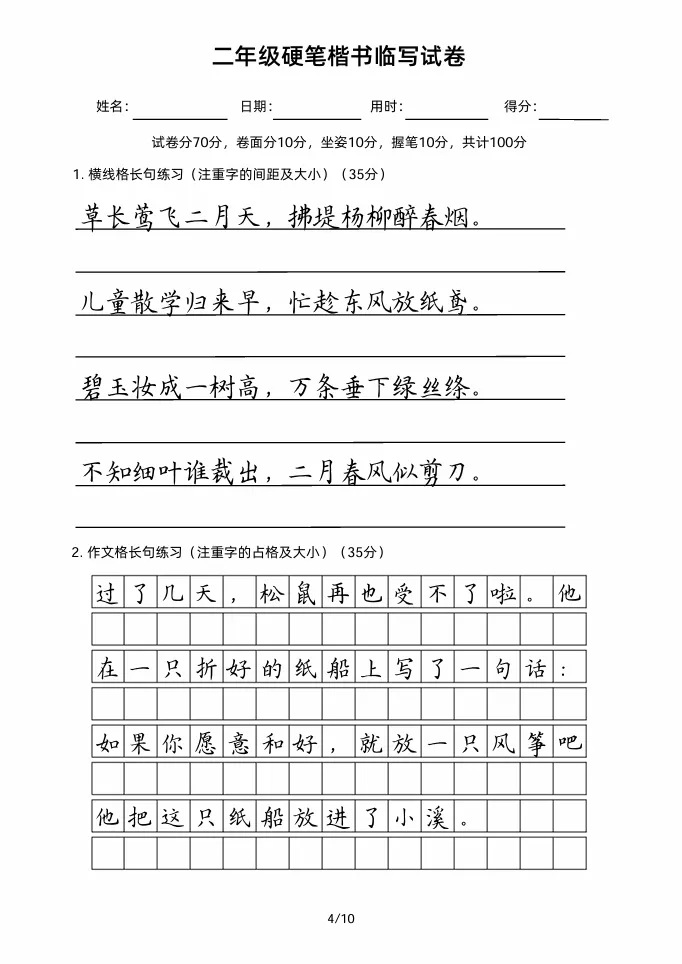 二年级硬笔楷书临写试卷
姓名： 日期： 用时： 得分：
试卷分70分，卷面分10分，坐姿10分，握笔10分，共计100分
1. 横线格长句练习（注重字的间距及大小）（35分）
草长莺飞二月天，拂堤杨柳醉春烟。
儿童散学归来早，忙趁东风放纸鸢。
碧玉妆成一树高，万条垂下绿丝绦。
不知细叶谁裁出，二月春风似剪刀。
2. 作文格长句练习（注重字的占格及大小）（35分）
过了几天，松鼠再也受不了啦。他
在一只折好的纸船上写了一句话：
如果你愿意和好，就放一只风筝吧
他把这只纸船放进了小溪。
4/10